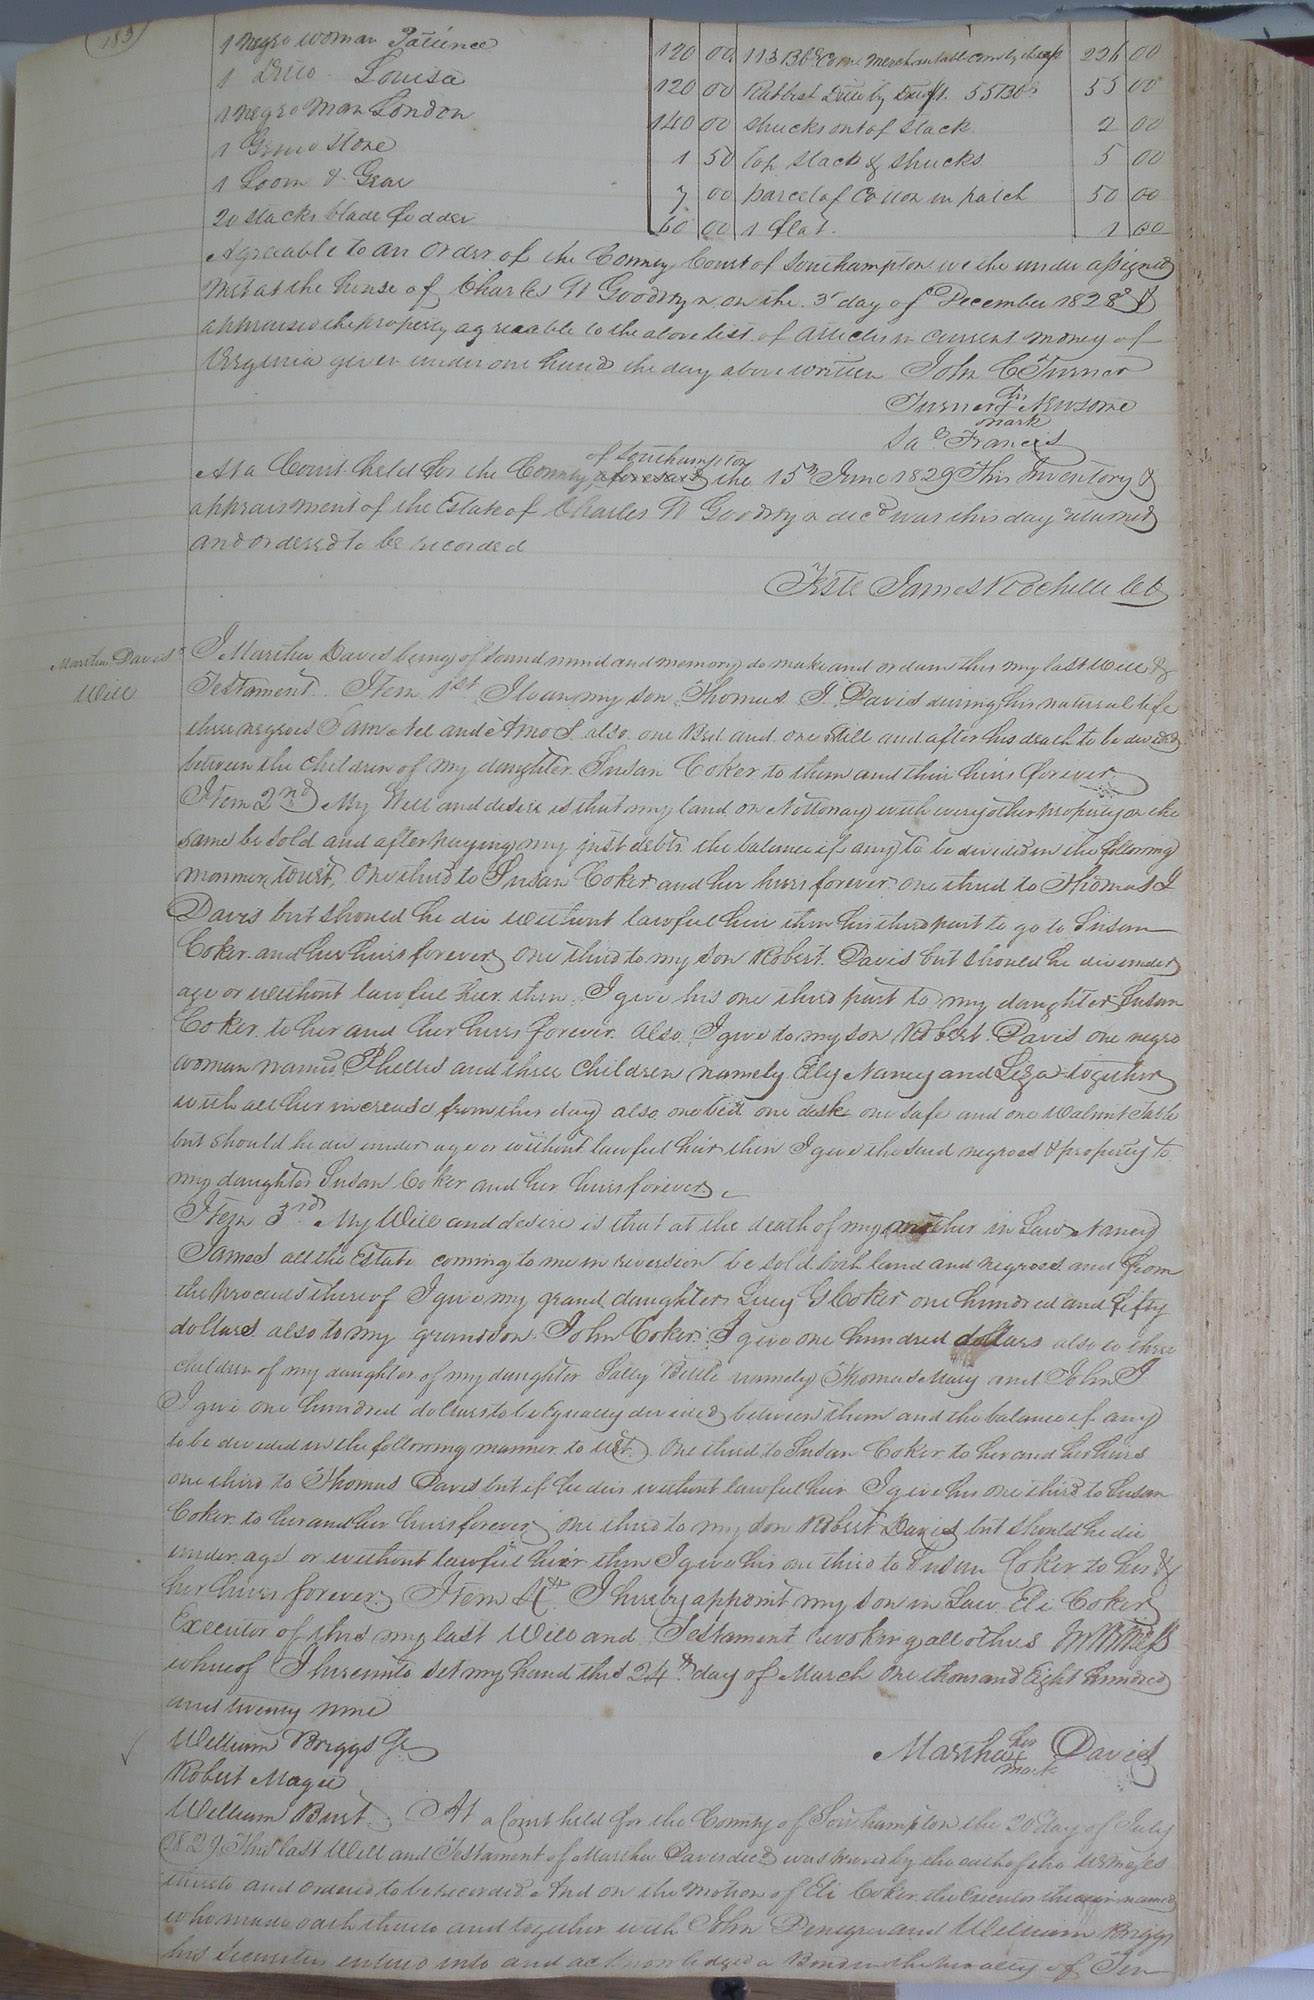 183
1 Negro woman Patience 120 00 113 Bbs Corn Merchantable 226 00
1 Ditto Louisa 120 00 Rubbish Ditto by Draft 55 Bbs 55 00
1 Negro Man London 140 00 shucks out of Stack 2 00
1 Grind Stone 1 50 top stack & shucks 5 00
1 Loom & Gear 7 00 parcel of Cotton in patch 50 00
20 stacks blade fodder 60 00 1 flat 1 00
Agreeable to an Order of the County Court of Southampton we the under assigned
met at the house of Charles N Goodwyn on the 3d day of December 1828 &
appraised the property agreeable to the above list of articles in current money of
Virginia given under our hand the day above written John C Turner
Turner his + mark Newsome
Sa Francis
At a Court held for the County aforesaid of Southampton the 15th June 1829 This Inventory &
appraisment of the Estate of Charles N Goodwyn decd was this day returned
and ordered to be recorded
Teste James Rochelle CC
Martha Davis's
Will
I Martha Davis being of sound mind and memory do make and ordain this my last Will &
Testament. Item 1st I loan my son Thomas J Davis during his natural life
three negroes Sam Ned and Amos also one Bed and one Still and after his death to be divided
between the children of my daughter Susan Coker to them and their heirs forever
Item 2nd My Will and desire is that my land on Nottoway with every other property on the
same be sold and after paying my just debts the balance if any to be divided in the following
manner, towit, One third to Susan Coker and her heirs forever one third to Thomas J
Davis but should he die without lawful heir then his third part to go to Susan
Coker and her heirs forever one third to my son Robert Davis but should he die under
age or without lawful heir then I give his one third part to my daughter Susan
Coker to her and her heirs forever. Also I give to my son Robert Davis one negro
woman named Phillis and three children namely Ely Nancy and Liza together
with all her increase from this day also one bed one desk one safe and one Walnut Table
but should he die under age or without lawful heir then I give the said negroes & property to
my daughter Susan Coker and her heirs forever
Item 3rd My Will and desire is that at the death of my mother in Law Nancy
James all the Estate coming to me in reversion be sold both land and negroes and from
the proceeds thereof I give my grand daughter Lucy G Coker one hundred and fifty
dollars also to my grandson John Coker I give one hundred dollars also to three
children of my daughter of my daughter Sally Bittle namely Thomas Mary and John J
I give one hundred dollars to be Equally divided between them and the balance if any
to be divided in the following manner to wit. One third to Susan Coker to her and her heirs
one third to Thomas Davis but if he dies without lawful heir I give his one third to Susan
Coker to her and her heirs forever one third to my son Robert Davis but should he die
under age or without lawful heir then I give his one third to Susan Coker to her &
her heirs forever Item 4th I hereby appoint my son in Law Eli Coker
Executor of this my last Will and Testament revoking all others In Witness
whereof I hereunto set my hand this 24th day of March One thousand Eight hundred
and twenty nine
William Briggs Jr Martha her + mark Davis
Robert Magee
William Burt. At a Court held for the County of Southampton the 20th day of July
1829 This last Will and Testament of Martha Davis decd was proved by the oath of the Witnesses
thereto and ordered to be recorded And on the motion of Eli Coker the Executor therein named
who made oath thereto and together with John and William Briggs
his Securities entered into and acknowledged a Bond in the penalty of Ten